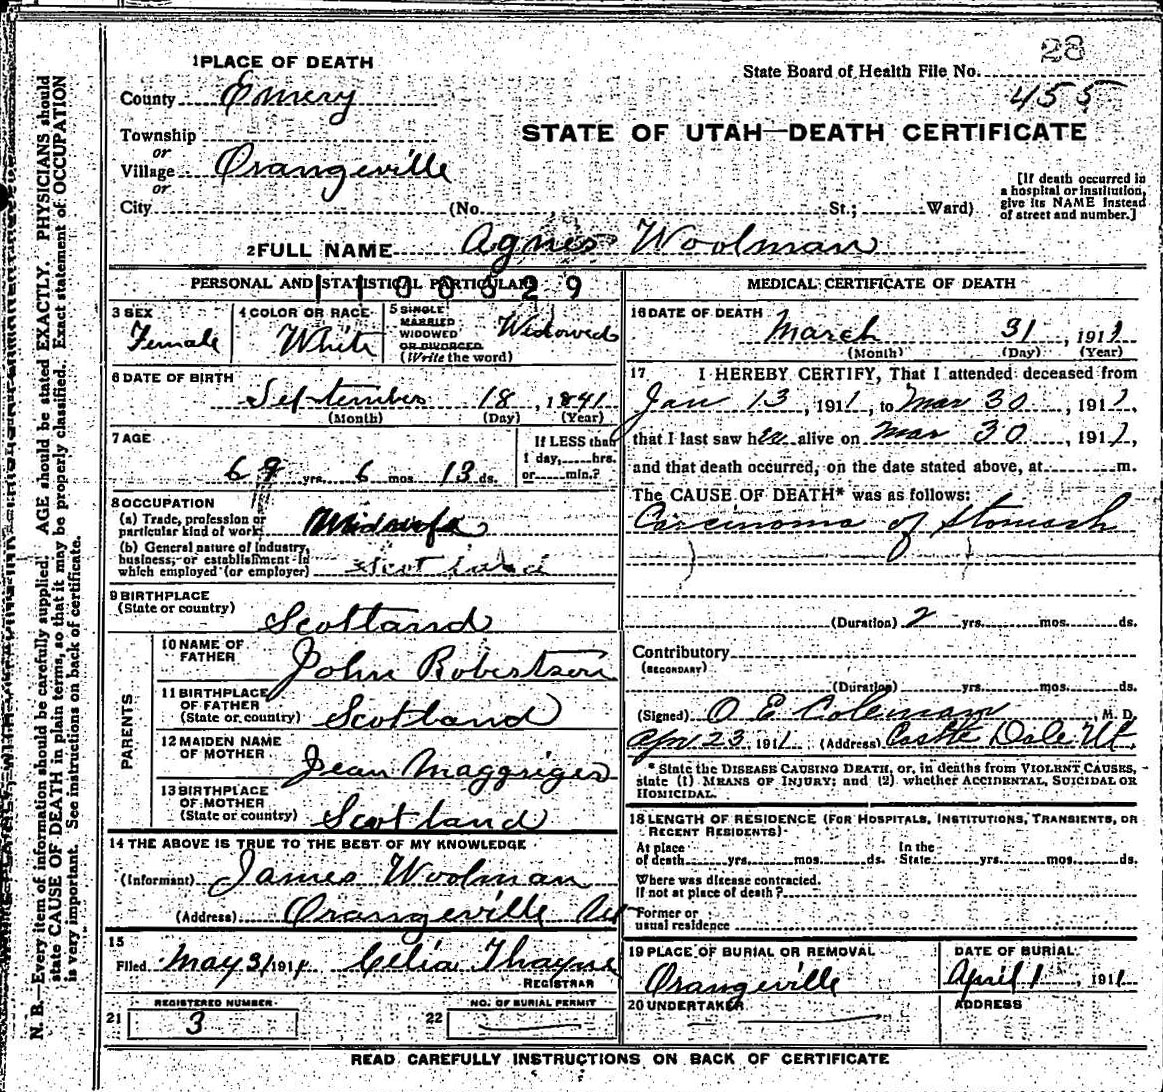 28
State Board of Health File No.
455
1 PLACE OF DEATH
County Emery
Township
or
Village Orangeville
or
City (No. St.; Ward)
STATE OF UTAH—DEATH CERTIFICATE
[If death occurred in
a hospital or institution,
give its NAME instead
of street and number.]
2 FULL NAME Agnes Woolman
PERSONAL AND STATISTICAL PARTICULARS
3 SEX
Female
4 COLOR OR RACE
White
5 SINGLE
MARRIED
WIDOWED
OR DIVORCED
(Write the word)
Widowed
6 DATE OF BIRTH
September 18, 1841
(Month) (Day) (Year)
7 AGE
69 yrs. 6 mos. 13 ds.
If LESS than
1 day, hrs.
or min.?
8 OCCUPATION
(a) Trade, profession or
particular kind of work Midwife
(b) General nature of industry,
business, or establishment in
which employed (or employer)
9 BIRTHPLACE
(State or country) Scotland
PARENTS
10 NAME OF
FATHER John Robertson
11 BIRTHPLACE
OF FATHER
(State or country) Scotland
12 MAIDEN NAME
OF MOTHER Jean
13 BIRTHPLACE
OF MOTHER
(State or country) Scotland
14 THE ABOVE IS TRUE TO THE BEST OF MY KNOWLEDGE
(Informant) James Woolman
(Address) Orangeville
15
Filed May 31 1911 Celia Thayne
REGISTRAR
REGISTERED NUMBER
21 3
NO. OF BURIAL PERMIT
22
MEDICAL CERTIFICATE OF DEATH
16 DATE OF DEATH
March 31, 1911
(Month) (Day) (Year)
17 I HEREBY CERTIFY, That I attended deceased from
Jan 13, 1911, to Mar 30, 1911,
that I last saw her alive on Mar 30, 1911,
and that death occurred, on the date stated above, at m.
The CAUSE OF DEATH* was as follows:
Carcinoma of Stomach
(Duration) 2 yrs. mos. ds.
Contributory
(SECONDARY)
(Duration) yrs. mos. ds.
(Signed) O E Coleman, M. D.
Apr 23 1911 (Address) Castle Dale Ut.
* State the DISEASE CAUSING DEATH, or, in deaths from VIOLENT CAUSES,
state (1) MEANS OF INJURY; and (2) whether ACCIDENTAL, SUICIDAL OR
HOMICIDAL.
18 LENGTH OF RESIDENCE (FOR HOSPITALS, INSTITUTIONS, TRANSIENTS, OR
RECENT RESIDENTS)
At place
of death yrs. mos. ds.
In the
State yrs. mos. ds.
Where was disease contracted.
If not at place of death?
Former or
usual residence
19 PLACE OF BURIAL OR REMOVAL
Orangeville
DATE OF BURIAL
April 1, 1911
20 UNDERTAKER
ADDRESS
READ CAREFULLY INSTRUCTIONS ON BACK OF CERTIFICATE
N. B. Every item of information should be carefully supplied. AGE should be stated EXACTLY. PHYSICIANS should
state CAUSE OF DEATH in plain terms, so that it may be properly classified. Exact statement of OCCUPATION
is very important. See instructions on back of certificate.